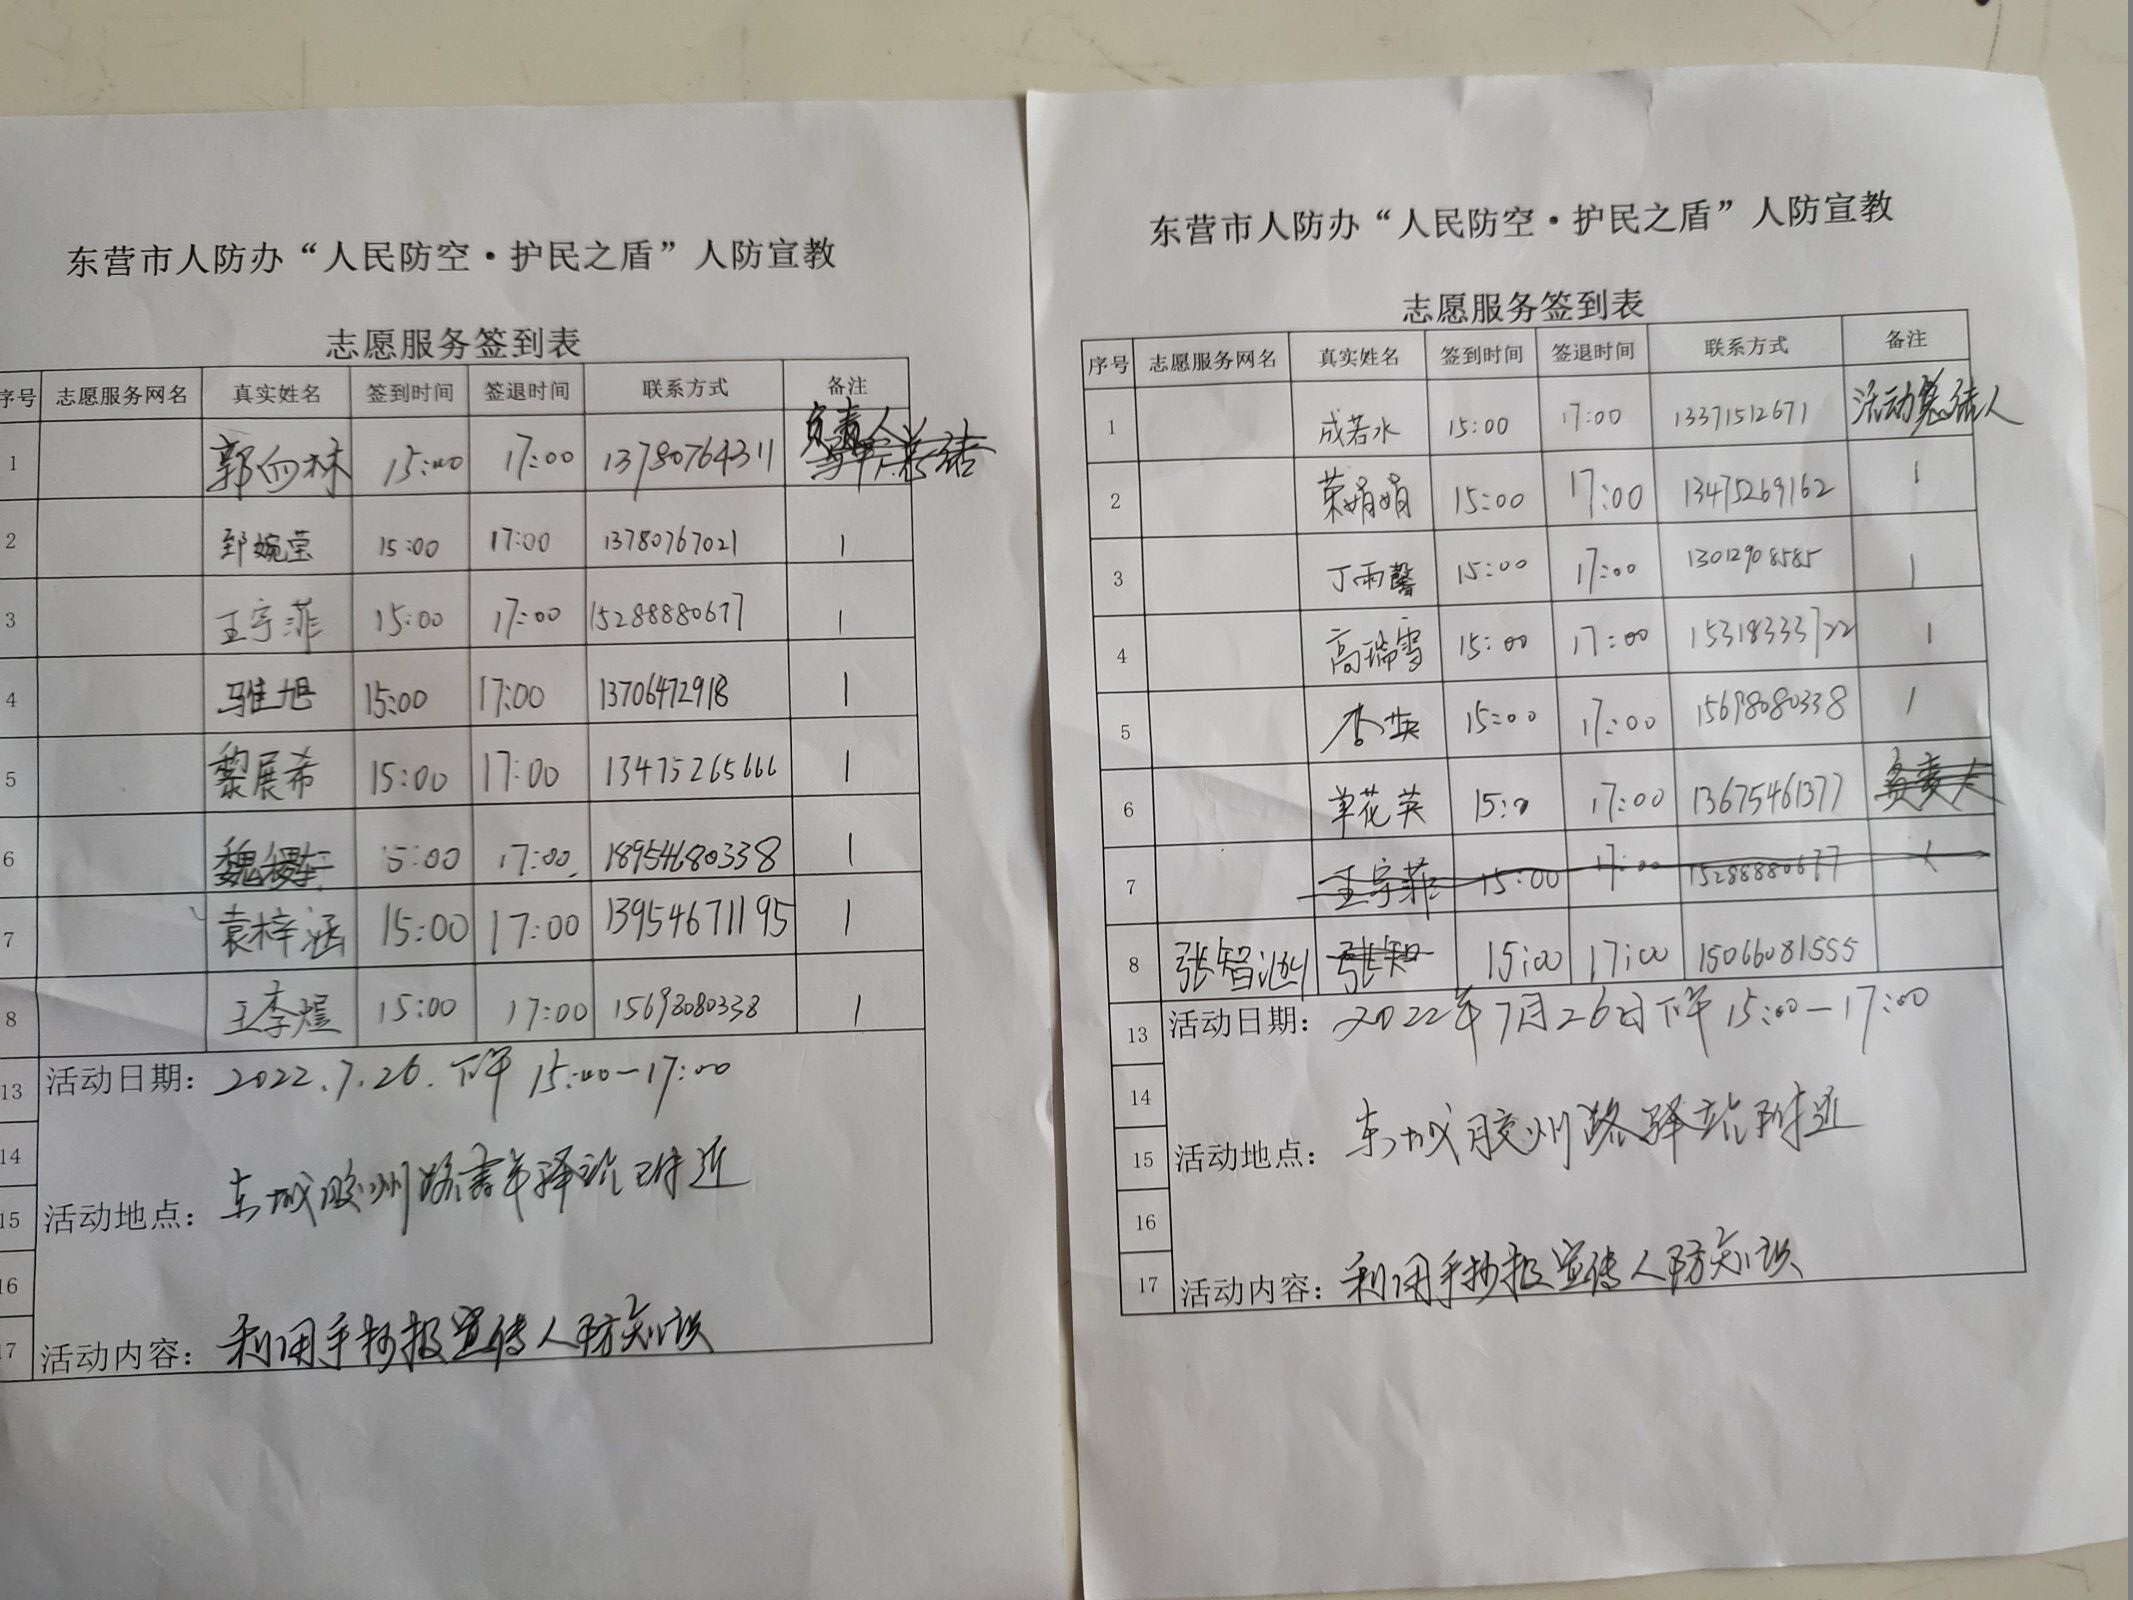 东营市人防办“人民防空·护民之盾”人防宣教
志愿服务签到表
序号 志愿服务网名 真实姓名 签到时间 签退时间 联系方式 备注
1 郭向林 15:00 17:00 13780764311 负责人
2 郅婉莹 15:00 17:00 13780767021 1
3 王宇菲 15:00 17:00 15288880677 1
4 骓旭 15:00 17:00 13706472918 1
5 黎展希 15:00 17:00 13475265666 1
6 15:00 17:00 18954680338 1
7 袁梓涵 15:00 17:00 13954671195 1
8 王李煊 15:00 17:00 15698080338 1
13 活动日期：2022.7.26.下午 15:00—17:00
14
15 活动地点：东城胶州路青年驿站附近
16
17 活动内容：利用手抄报宣传人防知识
东营市人防办“人民防空·护民之盾”人防宣教
志愿服务签到表
序号 志愿服务网名 真实姓名 签到时间 签退时间 联系方式 备注
1 成若水 15:00 17:00 13371512671 活动总结人
2 荣娟娟 15:00 17:00 13475269162 1
3 丁雨馨 15:00 17:00 13012908585 1
4 高瑞雪 15:00 17:00 15318333722 1
5 李英 15:00 17:00 15698080338 1
6 单花英 15:0 17:00 13675461377 负责人
7 王宇菲 15:00 17:00 15288880677 1
8 张智 张知 15:00 17:00 15066081555
13 活动日期：2022年7月26日下午 15:00—17:00
14
15 活动地点：东城胶州路驿站附近
16
17 活动内容：利用手抄报宣传人防知识